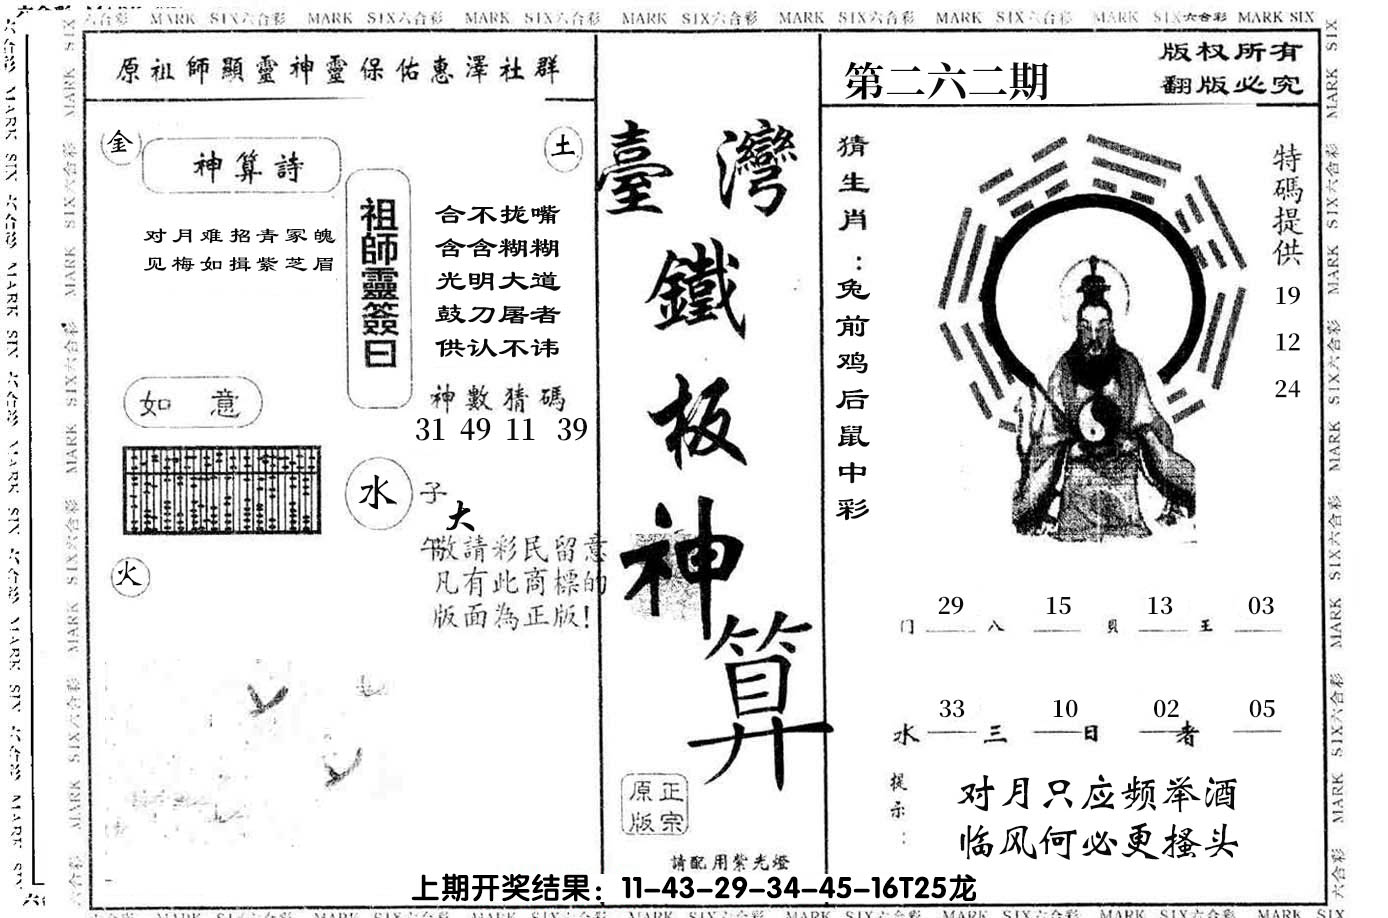 六合彩 MARK SIX六合彩 MARK SIX六合彩 MARK SIX六合彩 MARK SIX六合彩 MARK SIX六合彩 MARK SIX六合彩 MARK SIX六合彩 MARK SIX
原祖師顯靈神靈保佑惠澤社群
金
土
神算詩
对月难招青冢魄
见梅如揖紫芝眉
祖師靈簽曰
合不拢嘴
含含糊糊
光明大道
鼓刀屠者
供认不讳
神數猜碼
31 49 11 39
如意
水
子
大
午
火
敬請彩民留意
凡有此商標的
版面為正版!
臺灣
鐵
板
神
算
原正
版宗
請配用紫光燈
第二六二期
版权所有
翻版必究
猜生肖:兔前鸡后鼠中彩
特碼提供
19
12
24
29 15 13 03
门 八 贝 王
33 10 02 05
水 三 日 者
提示:
对月只应频举酒
临风何必更搔头
上期开奖结果：11-43-29-34-45-16T25龙